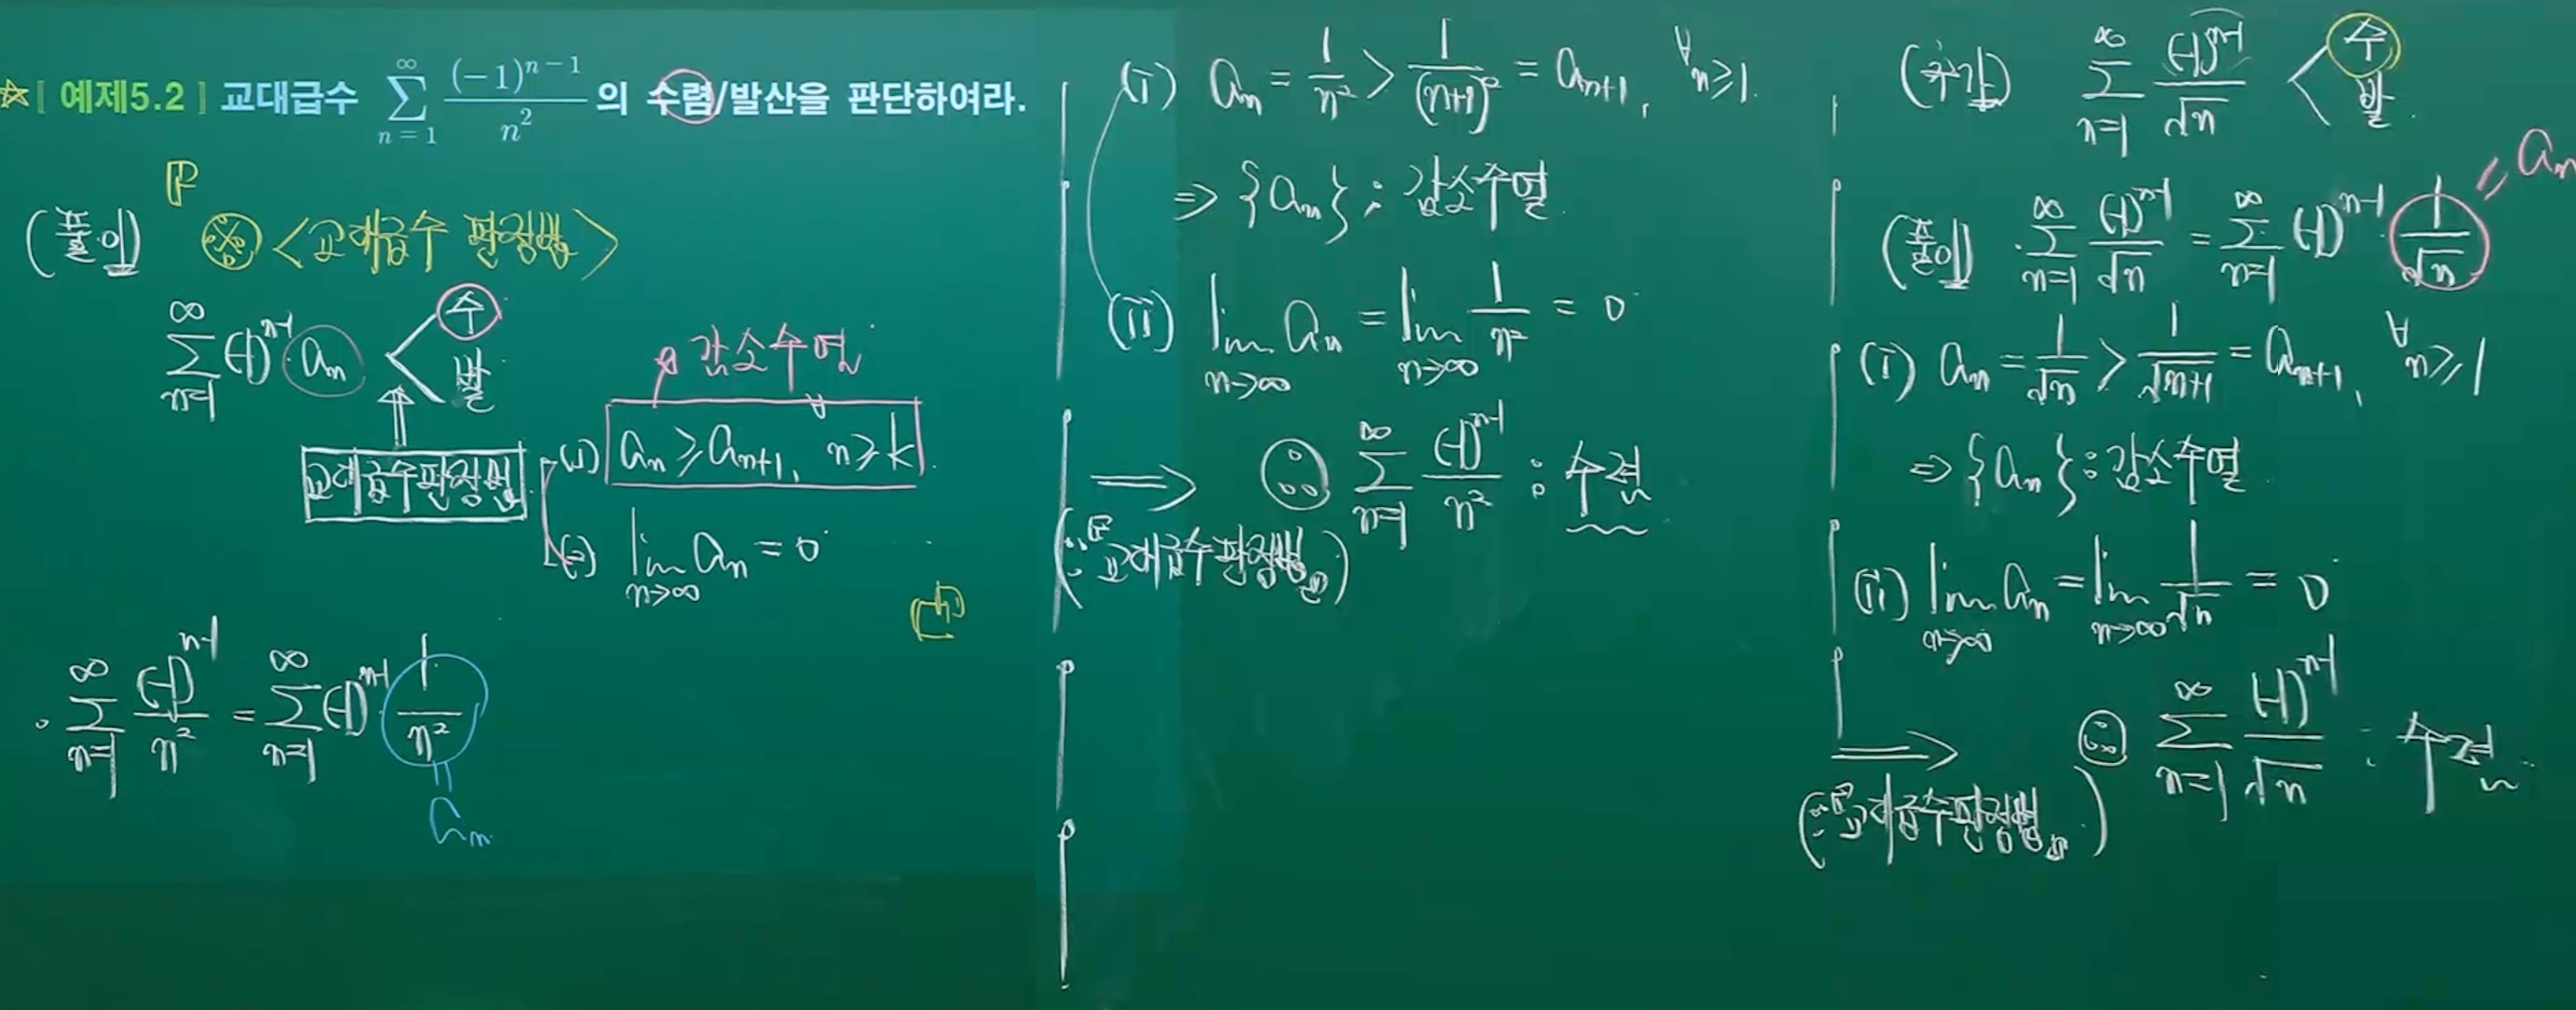 ☆[ 예제5.2 ] 교대급수 $\sum_{n=1}^{\infty} \frac{(-1)^{n-1}}{n^2}$ 의 수렴/발산을 판단하여라.
(풀이) ※ <교대급수 판정법>
$\sum_{n=1}^{\infty} (-1)^{n-1} a_n$ < 수 발
교대급수판정법
감소수열
(i) $a_n \geq a_{n+1}, \forall n \geq k$
(ii) $\lim_{n \to \infty} a_n = 0$
$\sum_{n=1}^{\infty} \frac{(-1)^{n-1}}{n^2} = \sum_{n=1}^{\infty} (-1)^{n-1} \cdot \frac{1}{n^2}$
= $a_n$
(i) $a_n = \frac{1}{n^2} > \frac{1}{(n+1)^2} = a_{n+1}, \forall n \geq 1$
⇒ {$a_n$} : 감소수열
(ii) $\lim_{n \to \infty} a_n = \lim_{n \to \infty} \frac{1}{n^2} = 0$
⇒ ∴ $\sum_{n=1}^{\infty} \frac{(-1)^{n-1}}{n^2}$ : 수렴
(∵ 교대급수판정법)
(추가) $\sum_{n=1}^{\infty} \frac{(-1)^{n-1}}{\sqrt{n}}$ < 수 발
(풀이) $\sum_{n=1}^{\infty} \frac{(-1)^{n-1}}{\sqrt{n}} = \sum_{n=1}^{\infty} (-1)^{n-1} \cdot \frac{1}{\sqrt{n}}$ = $a_n$
(i) $a_n = \frac{1}{\sqrt{n}} > \frac{1}{\sqrt{n+1}} = a_{n+1}, \forall n \geq 1$
⇒ {$a_n$} : 감소수열
(ii) $\lim_{n \to \infty} a_n = \lim_{n \to \infty} \frac{1}{\sqrt{n}} = 0$
⇒ ∴ $\sum_{n=1}^{\infty} \frac{(-1)^{n-1}}{\sqrt{n}}$ : 수렴
(∵ 교대급수판정법)